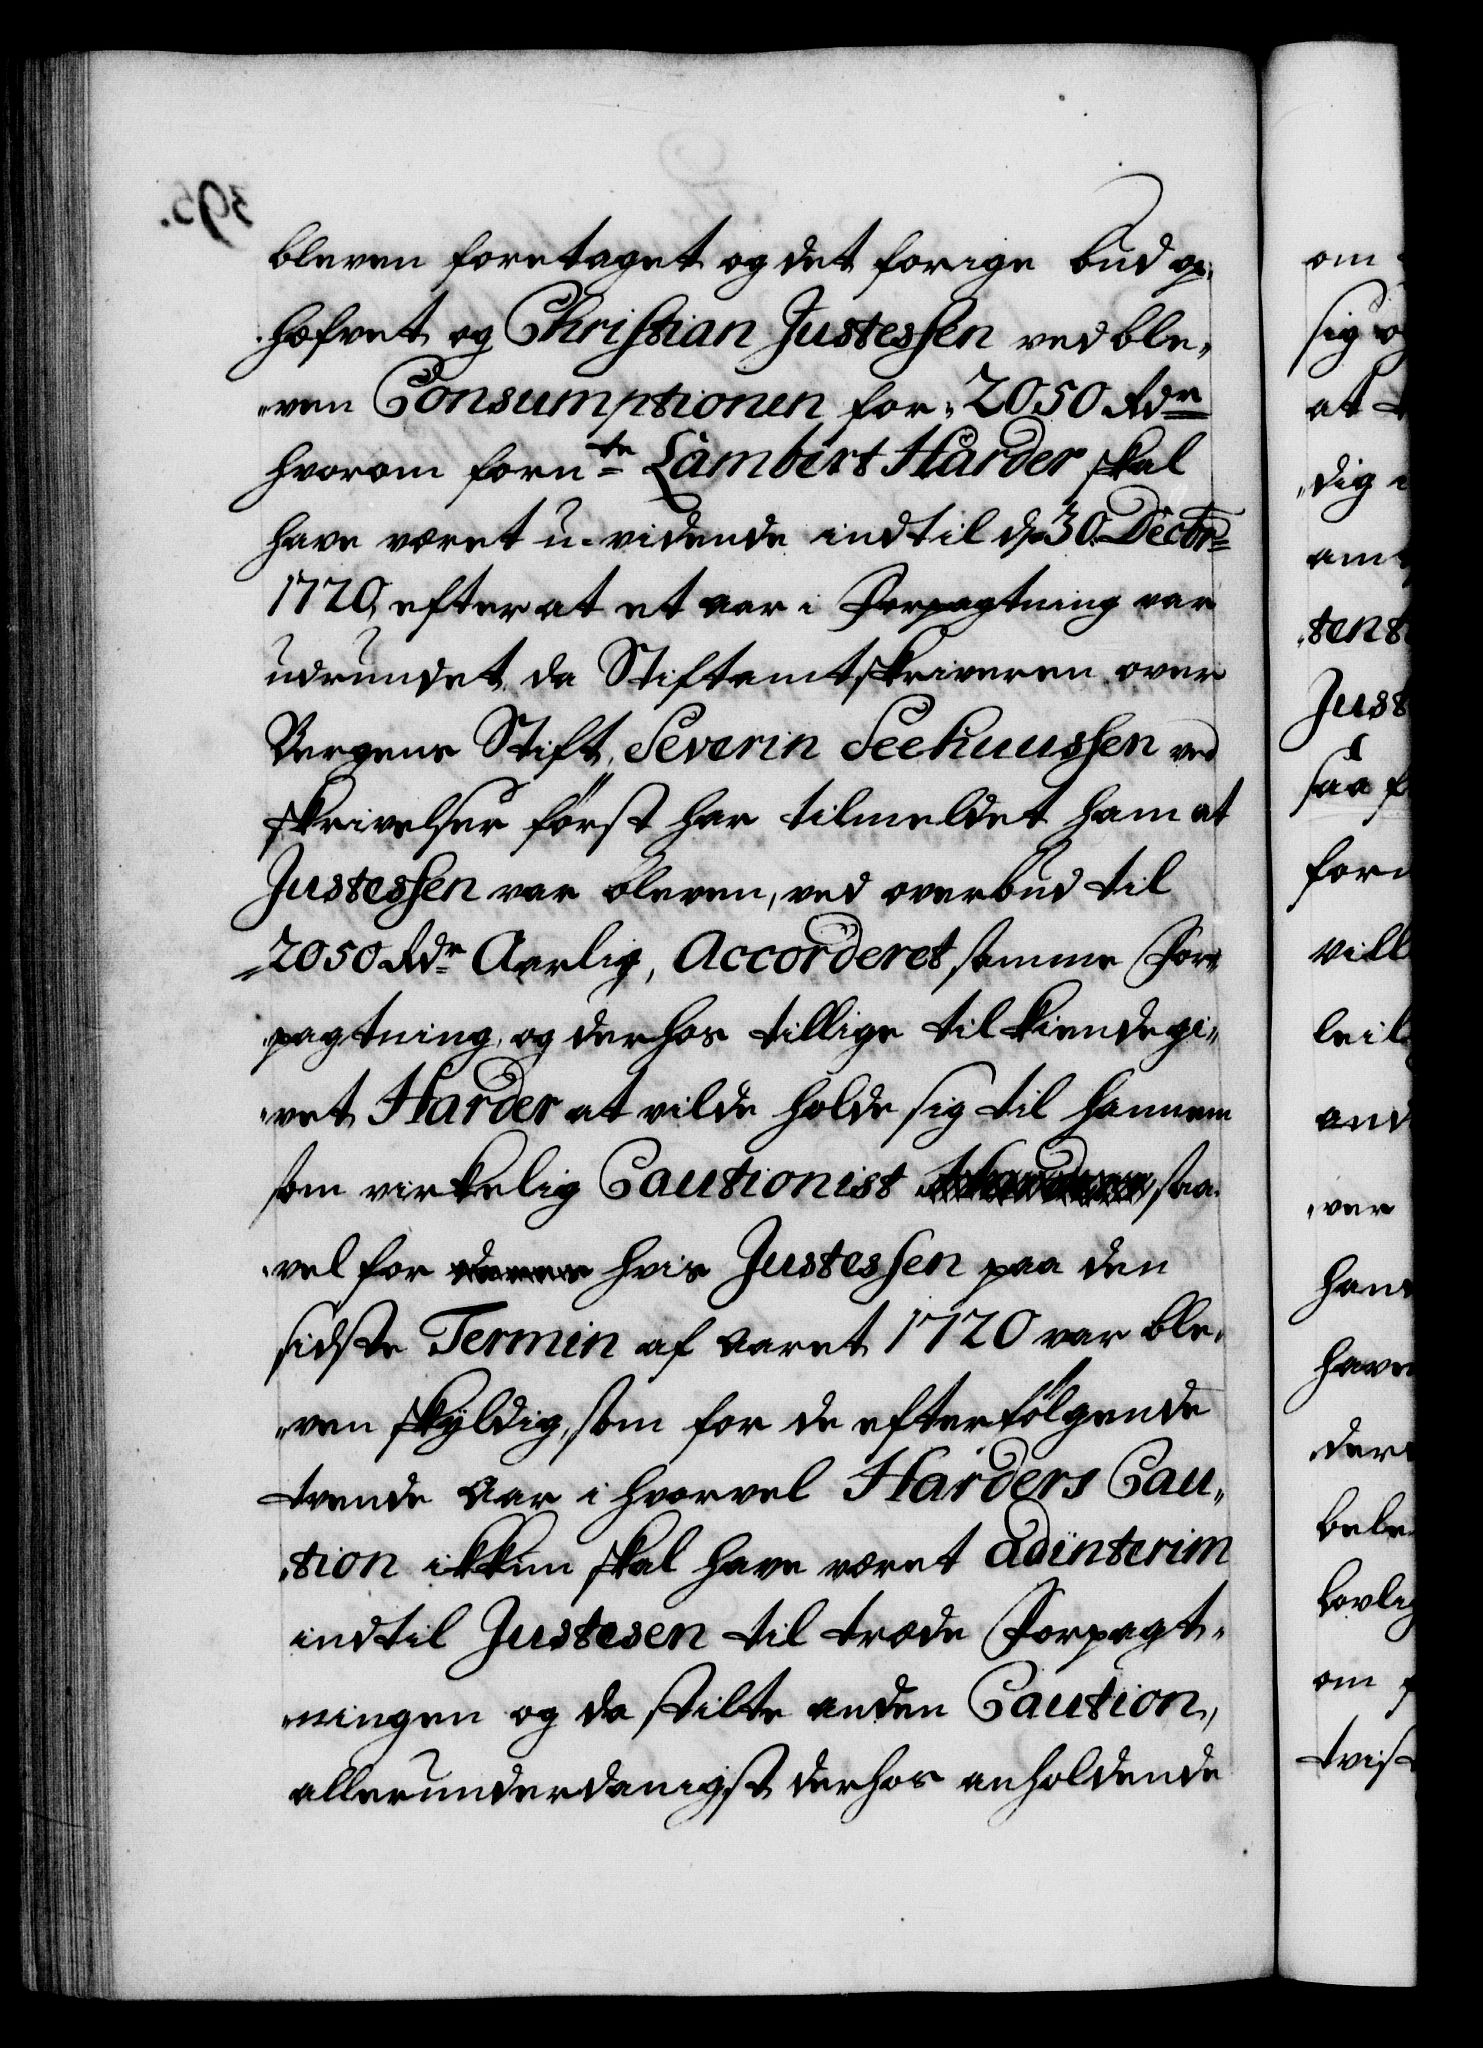 395.
bleven foretaget og det forige bud op,
høfvet og Christian Justessen ved ble,
„ven Consumptionen for: 2050 Rdr
hvorom fornte Lambert Harder skal
have været u-vidende indtil d. 30. Decbr
1720, efter at et aar i Forpagtning var
udrundet, da Stiftamtskriveren over
Bergens Stift, Severin Seehuussen ved
skrivelser først har tilmeldet ham at
Justessen var bleven, ved overbud til
2050 Rdr Aarlig, Accorderet samme For,
„pagtning, og derhos tillige tilkiendegi,
„vet Harder at vilde holde sig til hannem
som virkelig Cautionist saa,
„vel for hvis Justessen paa den
sidste Termin af aaret 1720 var ble,
„ven skyldig, som for de efterfølgende
tvende Aar i hvorvel Harders Cau,
„tion ikkun skal have været adinterim
indtil Justesen til træde Forpagt,
„ningen og da stilte anden Caution,
allerunderdanigst derhos anholdende
om
sig og
at
„dig
am
„tent
Just
saa f
forn
vill
leil
and
„ver
ham
have
der
bele
lovlig
om
tvist